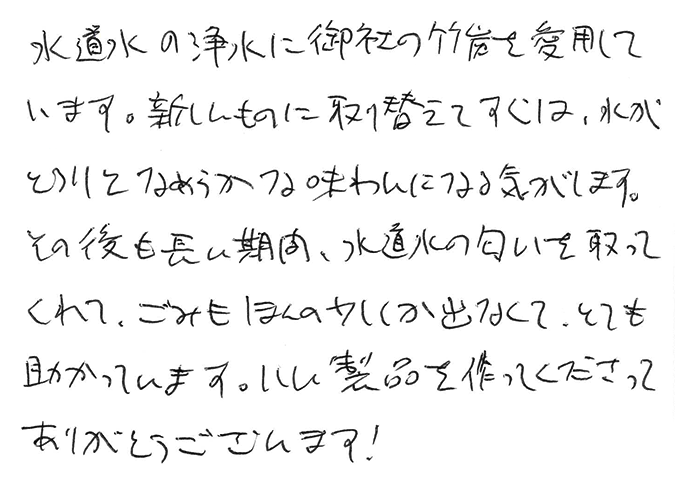 水道水の浄水に御社の竹炭を愛用して
います。新しいものに取り替えてすぐは、水が
とろりとなめらかな味わいになる気がします。
その後も長い期間、水道水の匂いを取って
くれて、ごみもほんの少ししか出なくて、とても
助かっています。いい製品を作ってくださって
ありがとうございます!